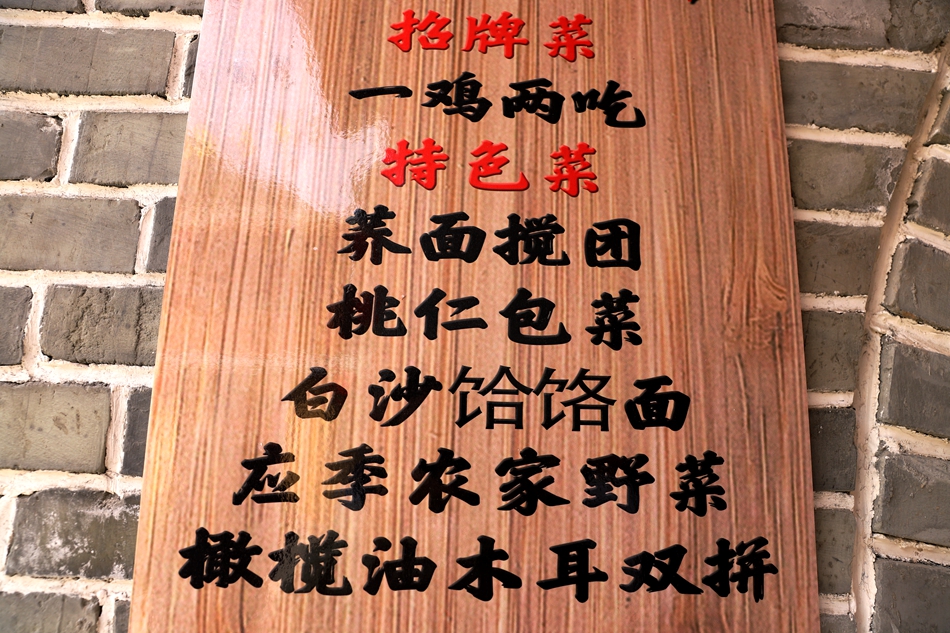 招牌菜
一鸡两吃
特色菜
荞面搅团
桃仁包菜
白沙饸饹面
应季农家野菜
橄榄油木耳双拼